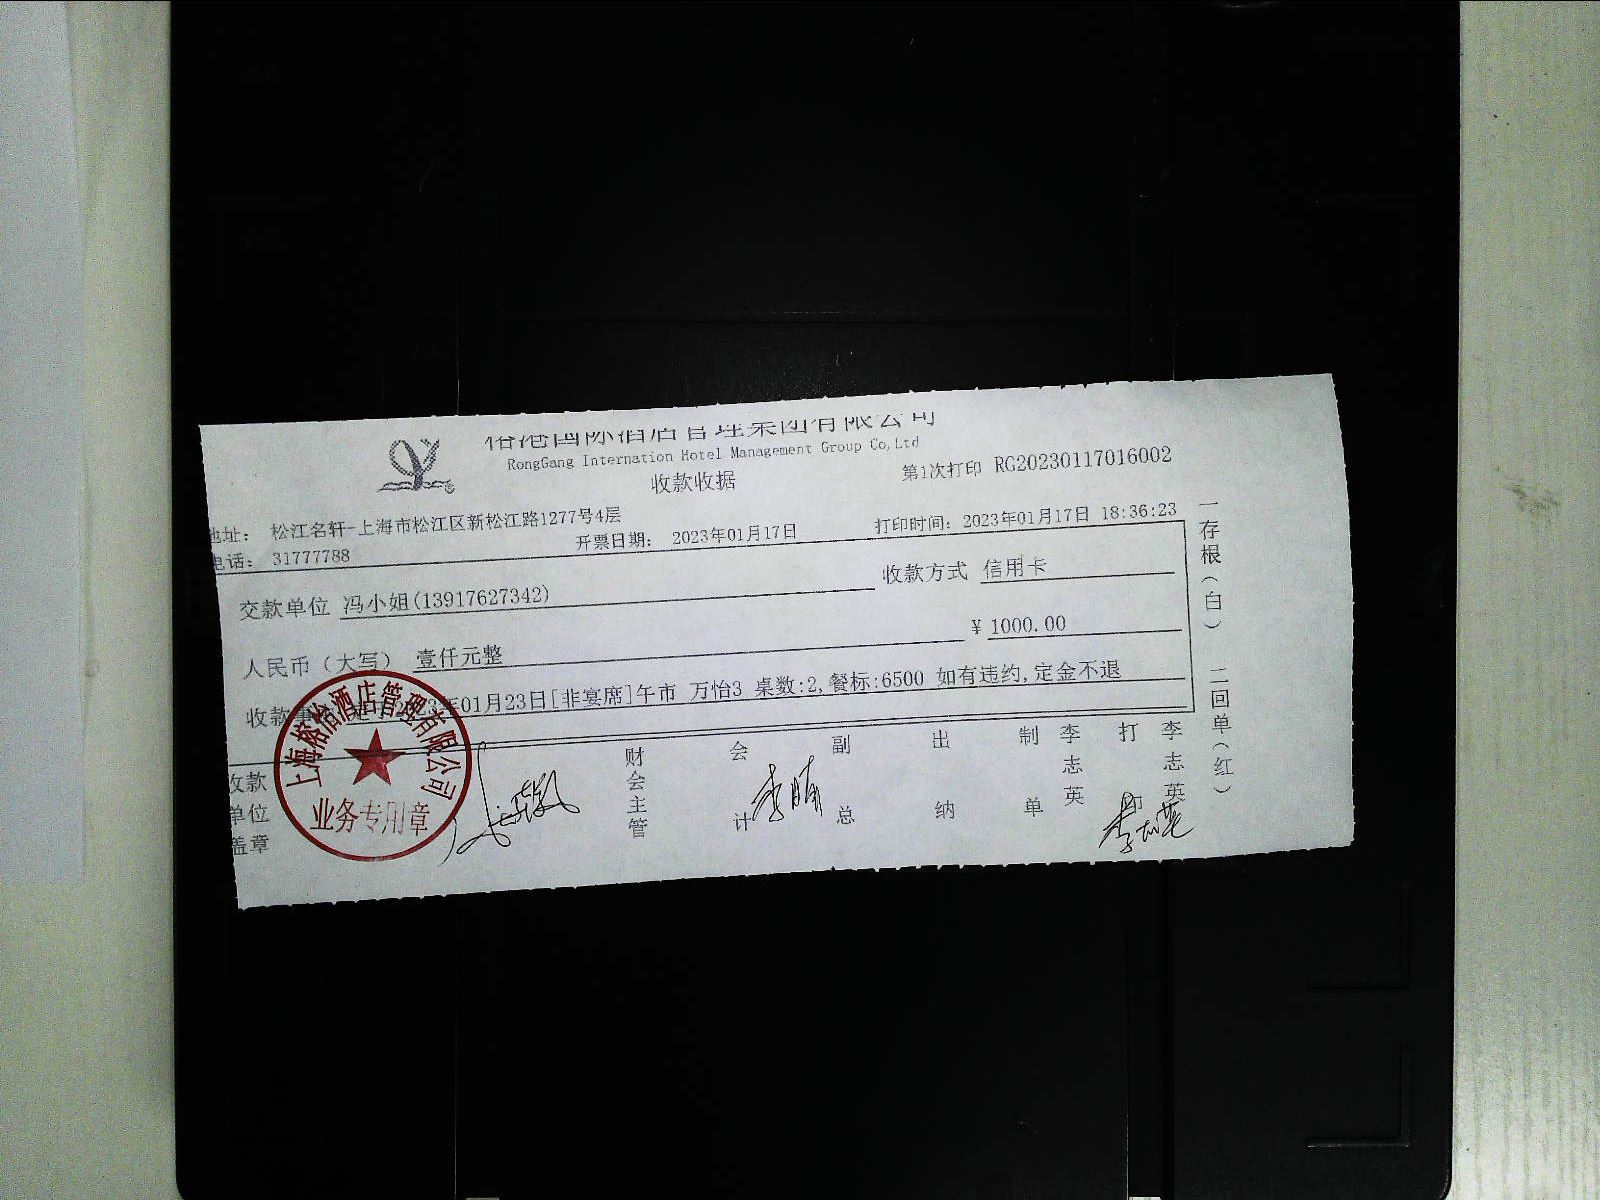 国际酒店管理集团有限公司
RongGang Internation Hotel Management Group Co,Ltd
收款收据
第1次打印 RG20230117016002
地址: 松江名轩-上海市松江区新松江路1277号4层
电话: 31777788
开票日期: 2023年01月17日
打印时间: 2023年01月17日 18:36:23
交款单位 冯小姐(13917627342)
收款方式 信用卡
人民币（大写） 壹仟元整
¥ 1000.00
收款事 年01月23日[非宴席]午市 万怡3 桌数:2,餐标:6500 如有违约,定金不退
收款单位盖章
财会主管
会计
副总
出纳
制单
李志英
打印
李志英
一存根(白) 二回单(红)
上海榕怡酒店管理有限公司
业务专用章